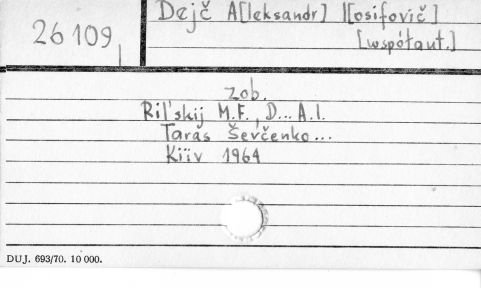 26 109
Dejč A[leksandr] I[osifovič]
[współaut.]
zob.
Ril'skij M.F., D... A.I.
Taras Ševčenko...
Kiïv 1964
DUJ. 693/70. 10 000.